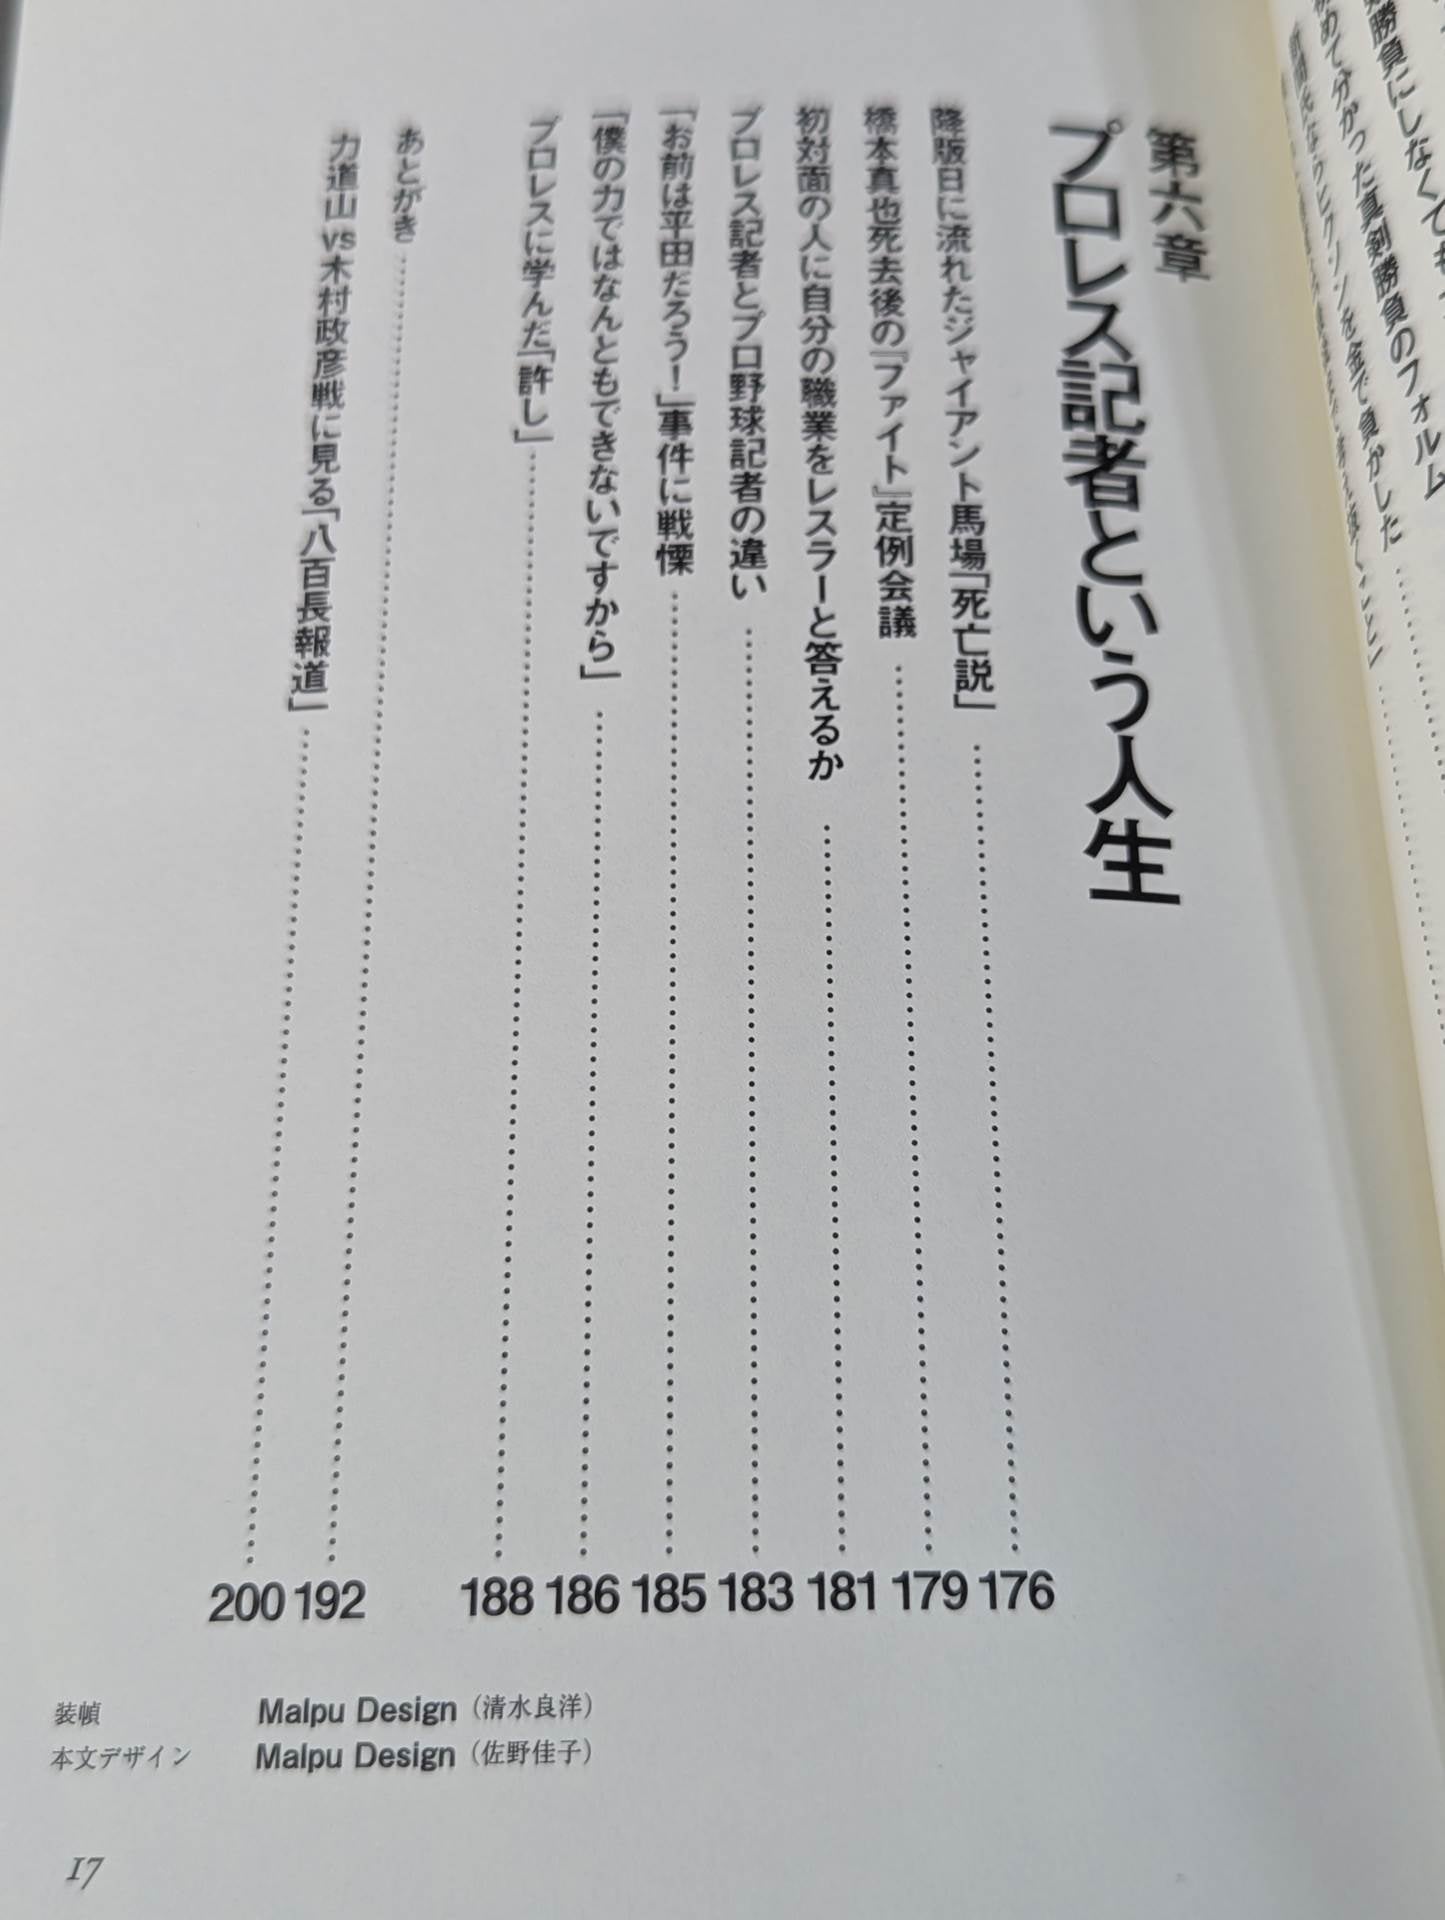 勝負にしなくても
めて分かった真剣勝負のフォルム
第六章
プロレス記者という人生
降版日に流れたジャイアント馬場「死亡説」 176
橋本真也死去後の『ファイト』定例会議 179
初対面の人に自分の職業をレスラーと答えるか 181
プロレス記者とプロ野球記者の違い 183
「お前は平田だろう!」事件に戦慄 185
「僕の力ではなんともできないですから」 186
プロレスに学んだ「許し」 188
あとがき 192
力道山vs木村政彦戦に見る「八百長報道」 200
装幀 Malpu Design(清水良洋)
本文デザイン Malpu Design(佐野佳子)
17